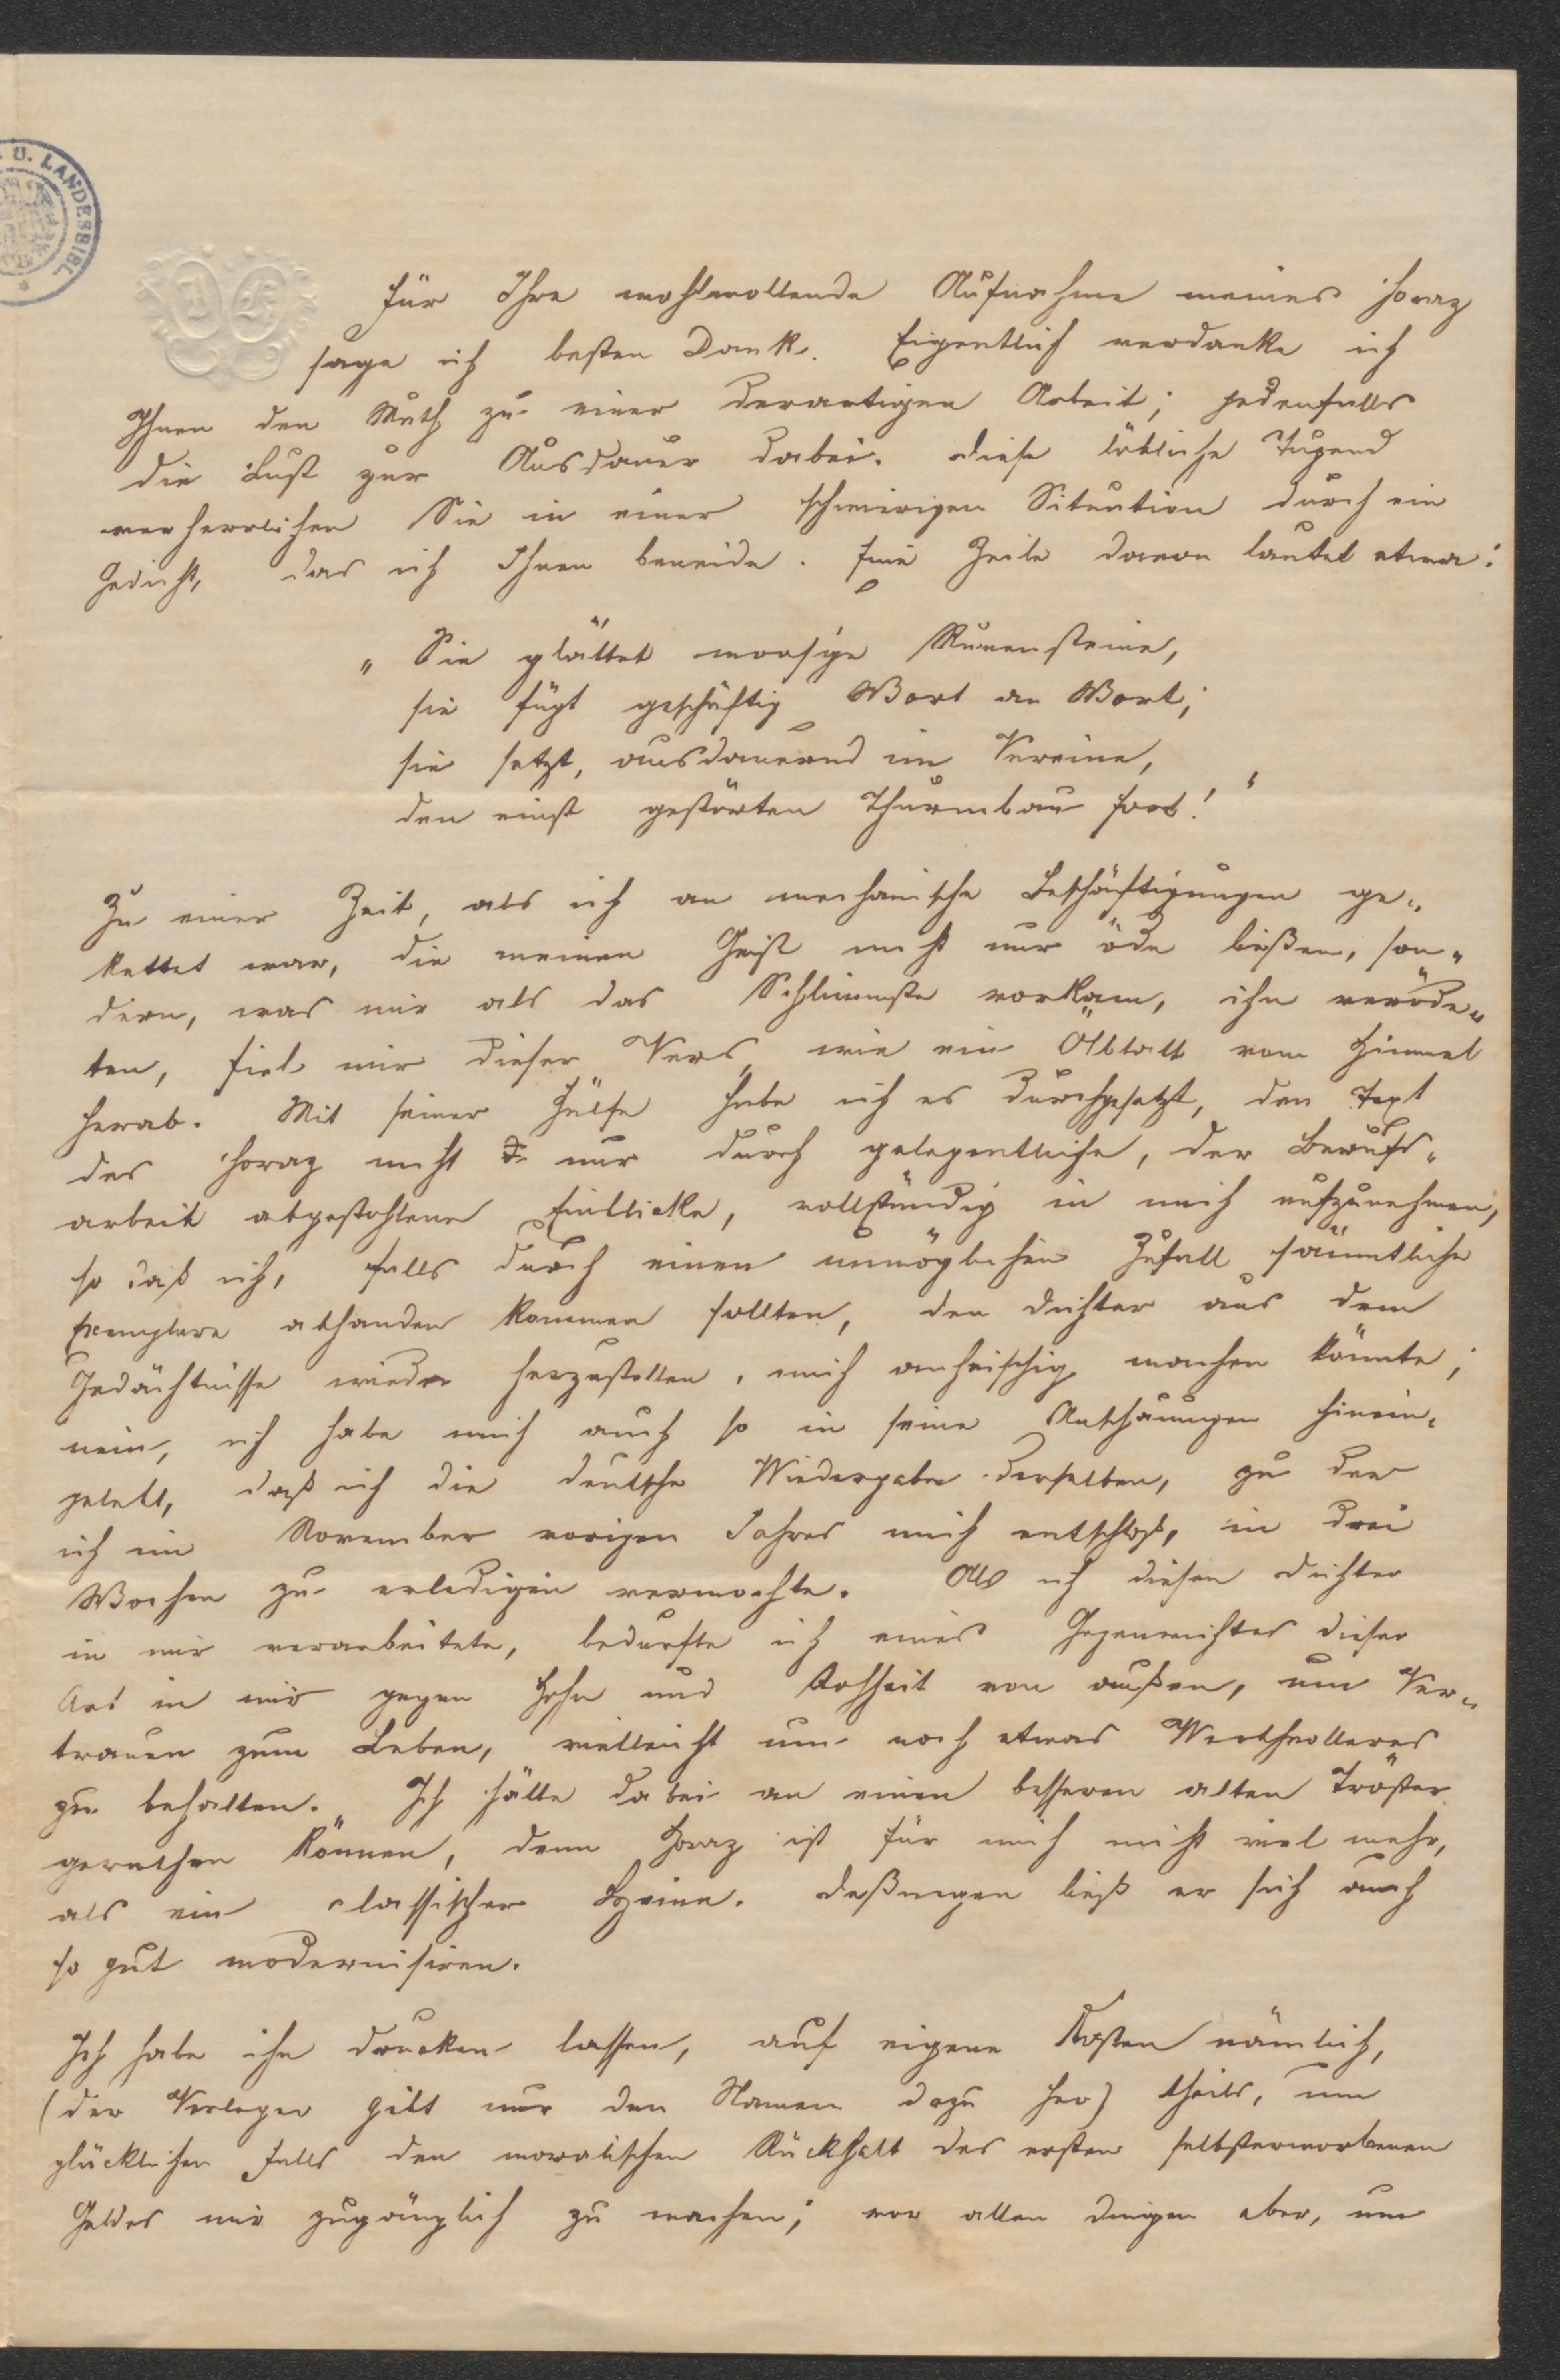 U. LANDESBIBL.
Für Ihre wohlwollende Aufnahme meines Horaz
sage ich besten Dank. Eigentlich verdanke ich
Ihnen den Muth zu einer derartigen Arbeit; jedenfalls
die Lust zur Ausdauer dabei. Diese löbliche Tugend
verherrlichen Sie in einer schwierigen Situation durch ein
Gedicht, das ich Ihnen beneide. Eine Zeile davon lautet etwa:
„Sie glättet moosige Runensteine,
sie fügt geschäftig Wort an Wort;
sie setzt, ausdauernd im Vereine,
den einst gestörten Thurmbau fort!“
Zu einer Zeit, als ich an mechanische Beschäftigungen ge-
kettet war, die meinen Geist nicht nur öde ließen, son-
dern, was mir als das Schlimmste vorkam, ihn veröde-
ten, fiel mir dieser Vers wie ein Ölblatt vom Himmel
herab. Mit seiner Hülfe habe ich es durchgesetzt, den Text
des Horaz nicht nur durch gelegentliche, der Berufs-
arbeit abgestohlene Einblicke, vollständig in mich aufzunehmen,
so daß ich, falls durch einen unmöglichen Zufall sämmtliche
Exemplare abhanden kommen sollten, den Dichter aus dem
Gedächtnisse wieder herzustellen, mich anheischig machen könnte;
nein, ich habe mich auch so in seine Anschauungen hinein-
gelebt, daß ich die deutsche Wiedergabe derselben, zu der
ich im November vorigen Jahres mich entschloß, in drei
Wochen zu erledigen vermochte. Als ich diesen Dichter
in mir verarbeitete, bedurfte ich eines Gegengewichtes dieser
Art in mir gegen Hohn und Rohheit von außen, um Ver-
trauen zum Leben, vielleicht um noch etwas Werthvolleres
zu behalten. Ich hätte dabei an einen besseren alten Tröster
gerathen können, denn Horaz ist für mich nicht viel mehr,
als ein classischer Heine. Deßwegen ließ er sich auch
so gut modernisiren.
Ich habe ihn drucken lassen, auf eigene Kosten nämlich,
(der Verleger gibt nur den Namen dazu her) theils, um
glücklichen Falls den moralischen Rückhalt des ersten selbsterworbenen
Geldes mir zugänglich zu machen; vor allen Dingen aber, um